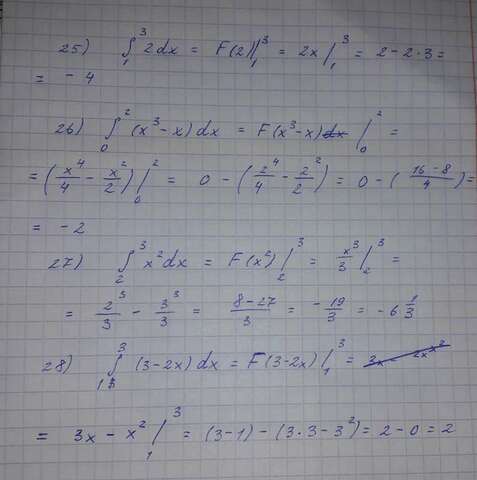 25) ∫₁³ 2dx = F(2)|₁³ = 2x|₁³ = 2 - 2·3 =
= - 4
26) ∫₀² (x³-x)dx = F(x³-x)|₀² =
= (x⁴/4 - x²/2)|₀² = 0 - (2⁴/4 - 2²/2) = 0 - (16-8/4) =
= - 2
27) ∫₂³ x²dx = F(x²)|₂³ = x³/3|₂³ =
= 2³/3 - 3³/3 = 8-27/3 = - 19/3 = - 6 1/3
28) ∫₁³ (3-2x)dx = F(3-2x)|₁³ =
= 3x - x²|₁³ = (3-1) - (3·3-3²) = 2-0 = 2